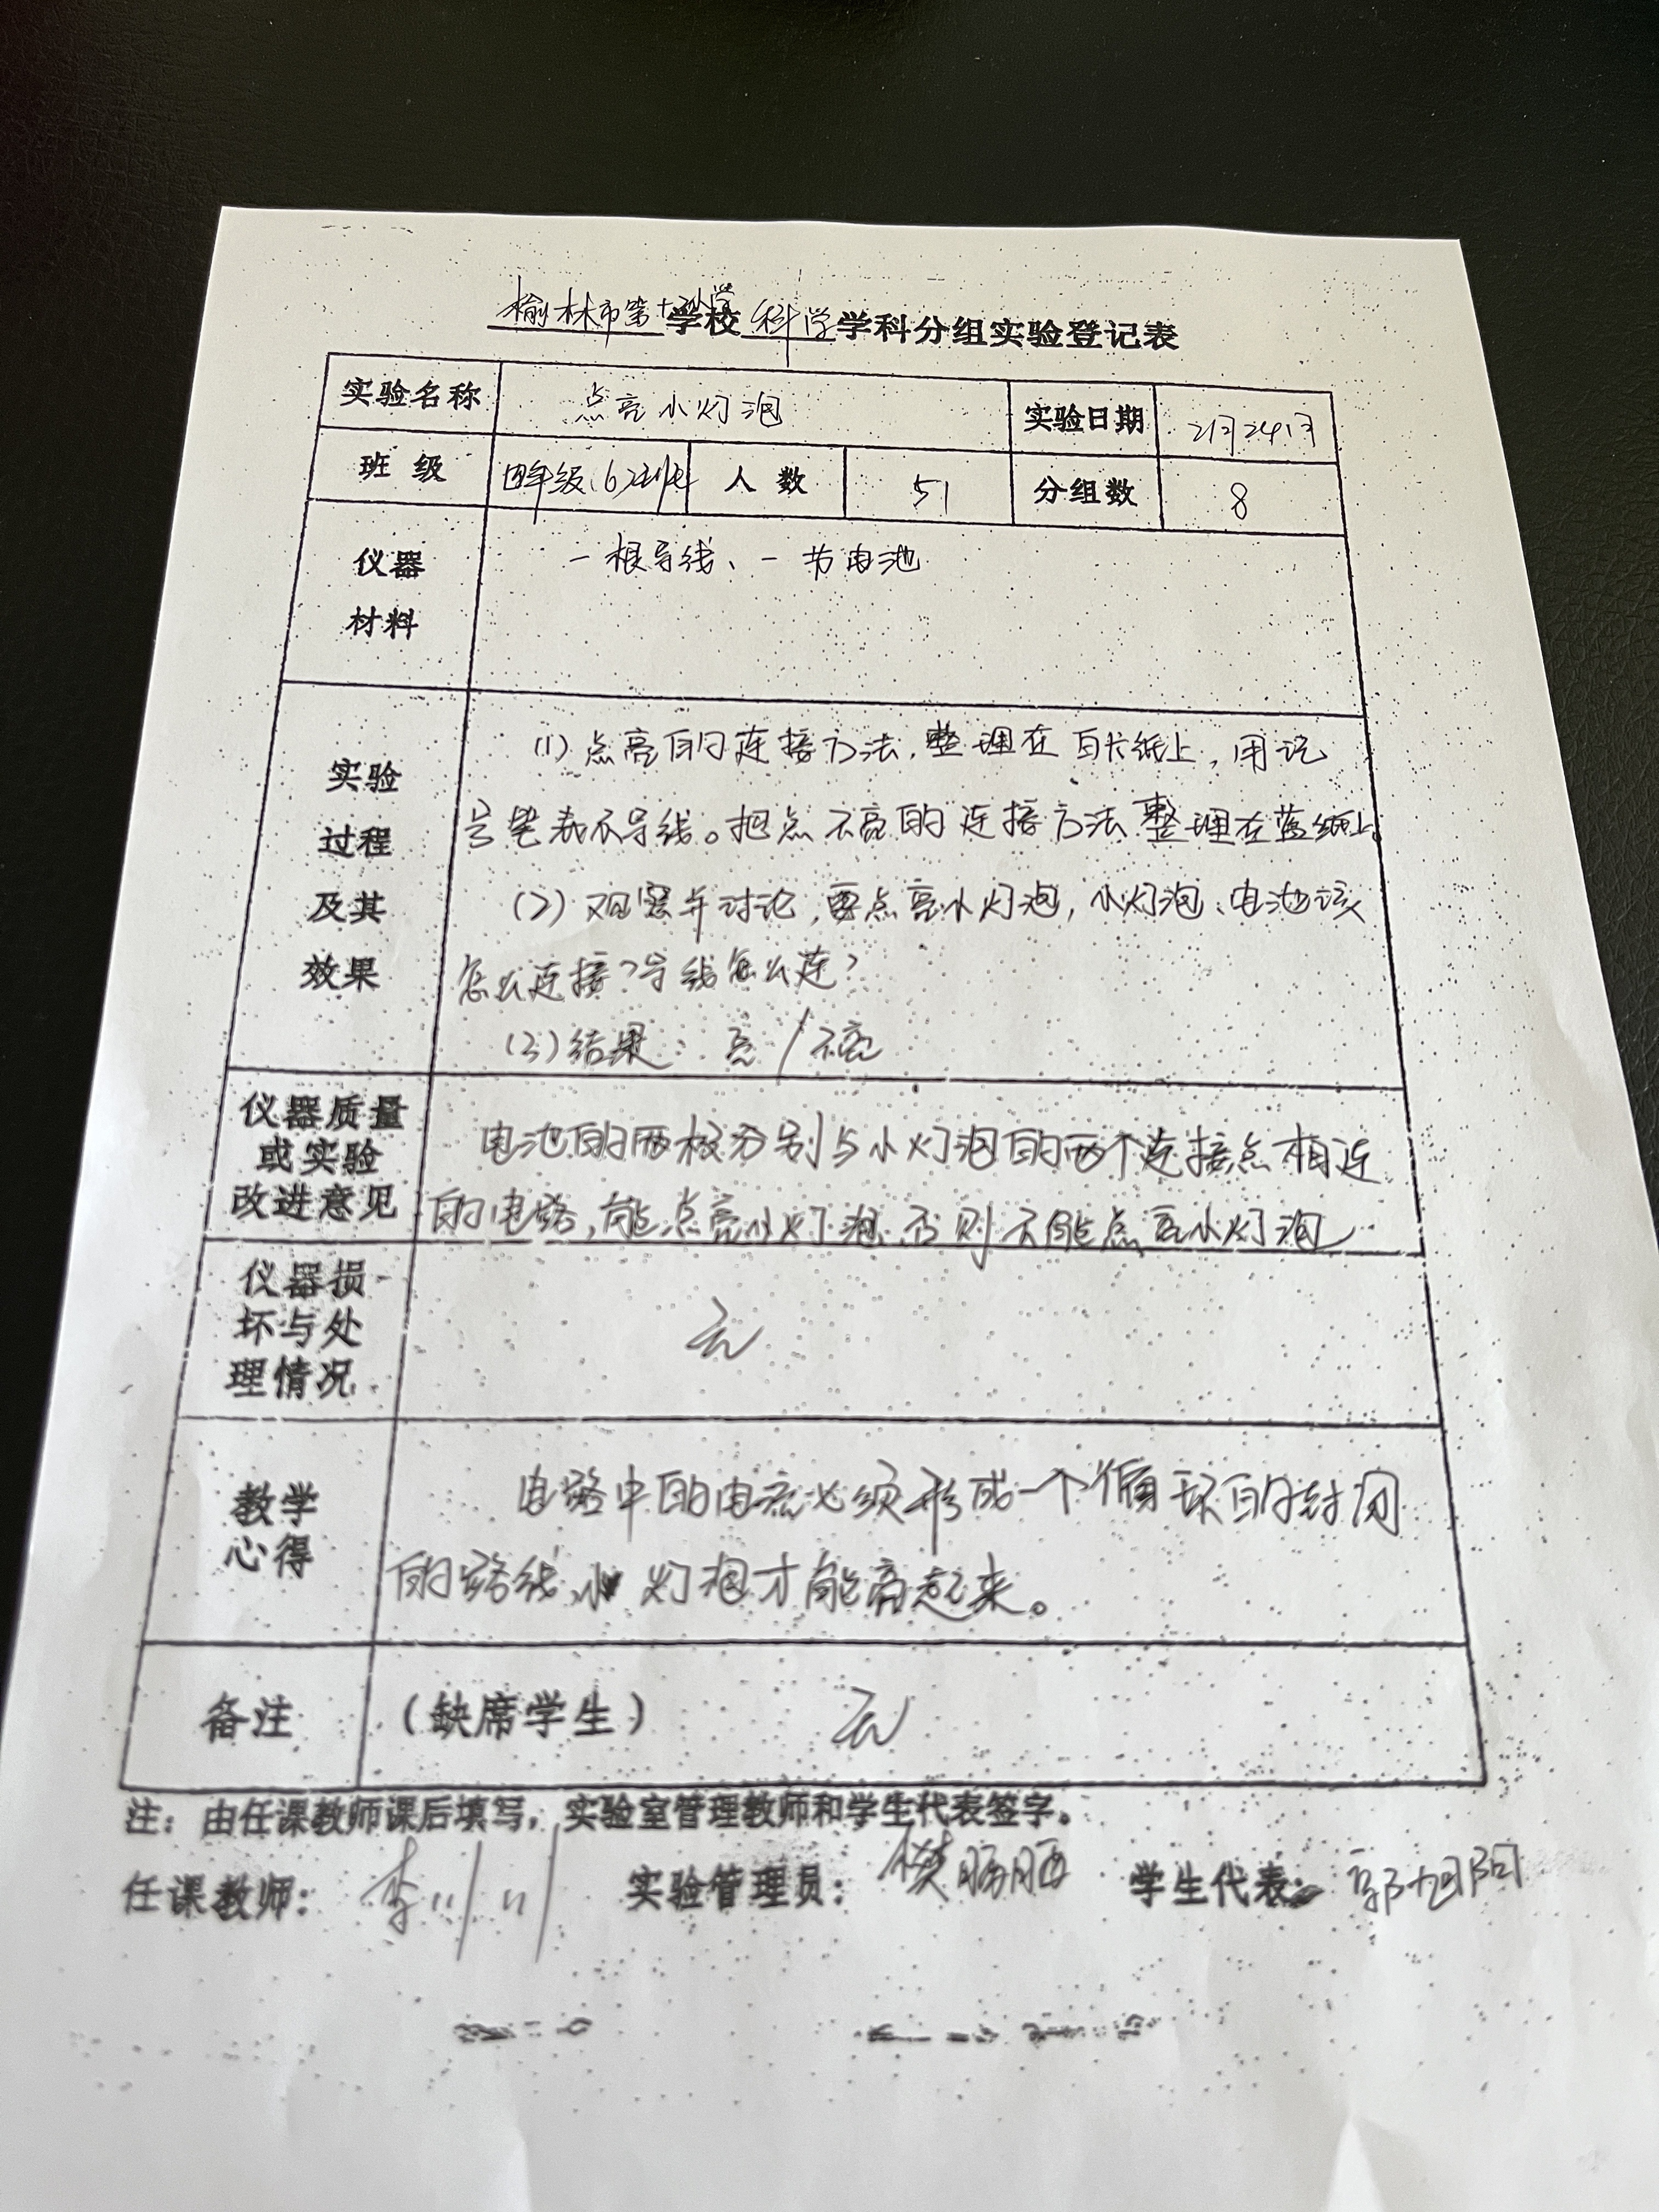 榆林市第十小学学校科学学科分组实验登记表
实验名称 点亮小灯泡 实验日期 2月24日
班级 四年级(6)班 人数 51 分组数 8
仪器 一根导线、一节电池
材料
(1)点亮的连接方法,整理在白卡纸上,用记
实验
号笔表示导线。把点不亮的连接方法整理在蓝纸上。
过程
及其 (2)观察并讨论,要点亮小灯泡,小灯泡、电池该
效果 怎么连接?导线怎么连?
(3)结果:亮/不亮
仪器质量 电池的两极分别与小灯泡的两个连接点相连
或实验
改进意见 的电路,能点亮小灯泡,否则不能点亮小灯泡
仪器损
坏与处 无
理情况
教学 电路中的电流必须形成一个循环的封闭
心得 的路线,小灯泡才能亮起来。
备注 (缺席学生) 无
注:由任课教师课后填写,实验室管理教师和学生代表签字。
任课教师:李 实验管理员:樊 学生代表:郭旭阳